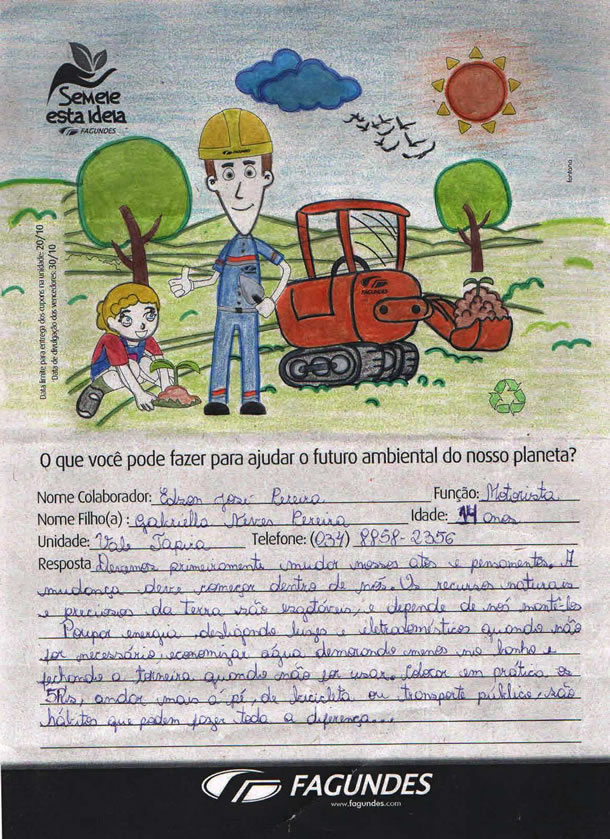 Semeie
esta ideia
FAGUNDES
fantoria
Data limite para entrega dos cupons na unidade: 20/10
Data de divulgação dos vencedores: 30/10
FAGUNDES
O que você pode fazer para ajudar o futuro ambiental do nosso planeta?
Nome Colaborador: Edson José Pereira Função: Motorista
Nome Filho(a) : Gabriella Neves Pereira Idade: 14 anos
Unidade: Vale Tapira Telefone: (034) 8858-2356
Resposta Devemos primeiramente mudar nossos atos e pensamentos. A
mudança deve começar dentro de nós. Os recursos naturais
e preciosos da terra são esgotáveis, e depende de nós mantê-los
Poupar energia, desligando luzes e eletrodomésticos quando não
for necessário economizar água demorando menos no banho e
fechando a torneira quando não for usar. Colocar em prática os
5Rs, andar mais á pé, de bicicleta ou transporte público, são
hábitos que podem fazer toda a diferença...
FAGUNDES
www.fagundes.com